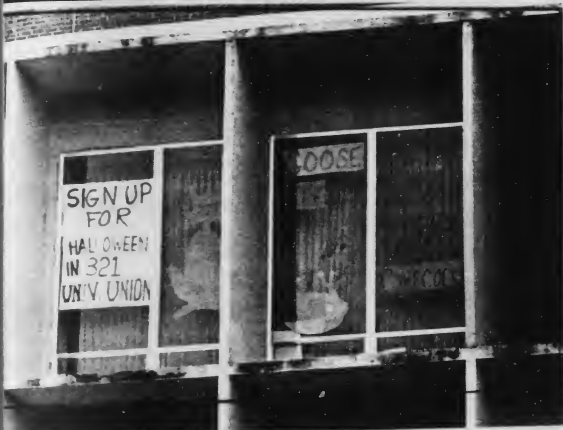 SIGN UP
FOR
HALLOWEEN
IN 321
UNIV. UNION
GOOSE